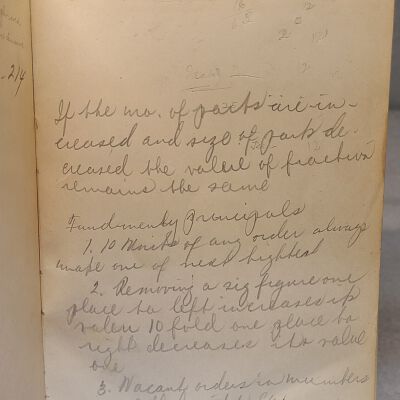 214
If the no. of parts are in-
creased and size of part de-
creased the value of fraction
remains the same
Fundmenty principals
1. 10 Units of any order always
make one of next highest
2. Removing a sig figure one
place to left increases its
valeu 10 fold one place to
right decreases its value
one
3. Vacant orders in numbers